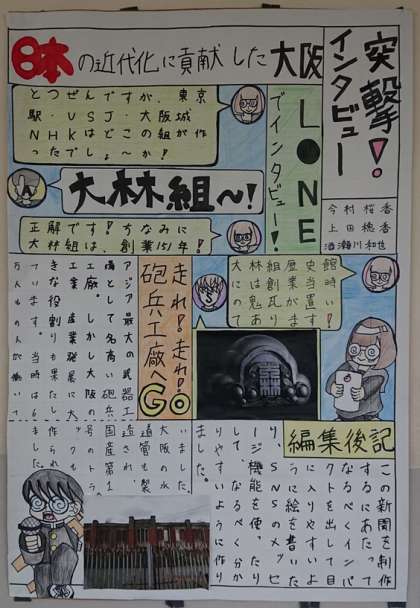 突撃!
インタビュー
日本の近代化に貢献した大阪
LINEでインタビュー!
今村桜香
上田穂香
酒瀬川和也
とつぜんですが、東京
駅・USJ・大阪城
NHKはどこの組が作
ったでしょ〜か!
大林組〜!
正解です!ちなみに
大林組は、創業151年!
館時い!
史当置す
歴業がま
組創瓦り
林は鬼あ
大にのて
走れ!走れ!
砲兵工廠へGo
アジア最大の兵器工
廠として名高い砲兵
工廠。しかし大阪の
工業、産業発展に大
きな役割も果たして
います。当時は6
万人もの人が働いて
いました。
大阪の水
道管も製
造され、
国産第1
号のトラ
ックも
作られ
ました。
編集後記
この新聞を制作
するにあたって
なるべくインパ
クトを出して目
に入りやすいよ
うに絵を書いた
り、SNSのメッセ
ージ機能を使ったり
して、なるべく分か
りやすいように作り
ました。